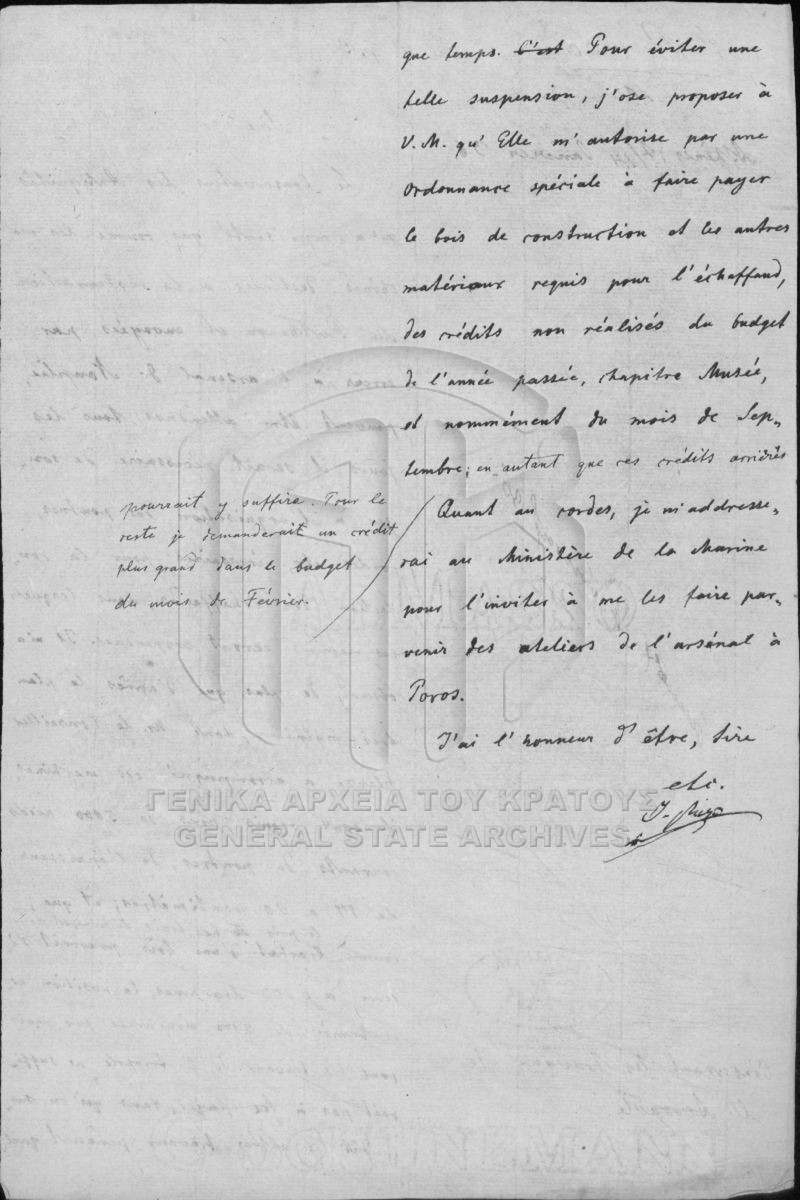 que temps. C'est Pour éviter une
telle suspension, j'ose proposer à
V. M. qu'Elle m'autorise par une
ordonnance spéciale à faire payer
le bois de construction et les autres
matériaux requis pour l'échaffaud,
des crédits non réalisés du budget
de l'année passée, chapitre Musée,
et nommément du mois de Sep-
tembre; en autant que ces crédits arriérés
pourrait y suffire. Pour le
reste je demanderait un crédit
plus grand dans le budget
du mois de Février.
Quant au cordes, je m'addresse-
rai au Ministère de la Marine
pour l'inviter à me les faire par-
venir des ateliers de l'arsénal à
Poros.
J'ai l'honneur d'être, Sire
etc.
ΓΕΝΙΚΑ ΑΡΧΕΙΑ ΤΟΥ ΚΡΑΤΟΥΣ
GENERAL STATE ARCHIVES